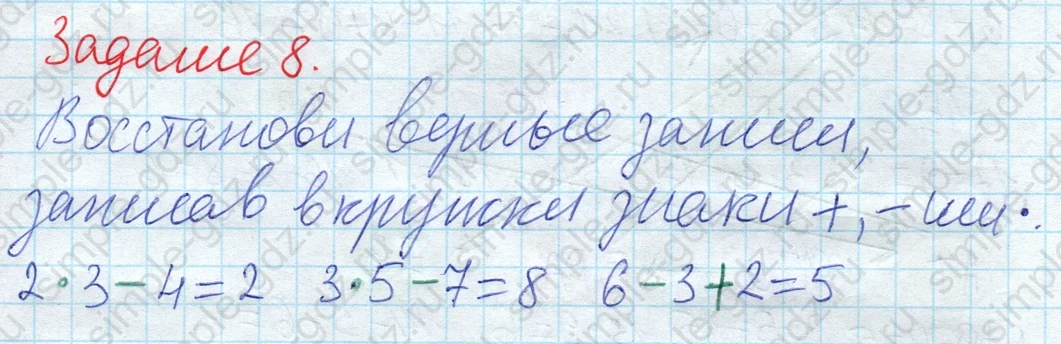 Задание 8.
Восстанови верные записи,
записав в кружки знаки +, - или ·.
2·3-4=2 3·5-7=8 6-3+2=5
simple-gdz.ru